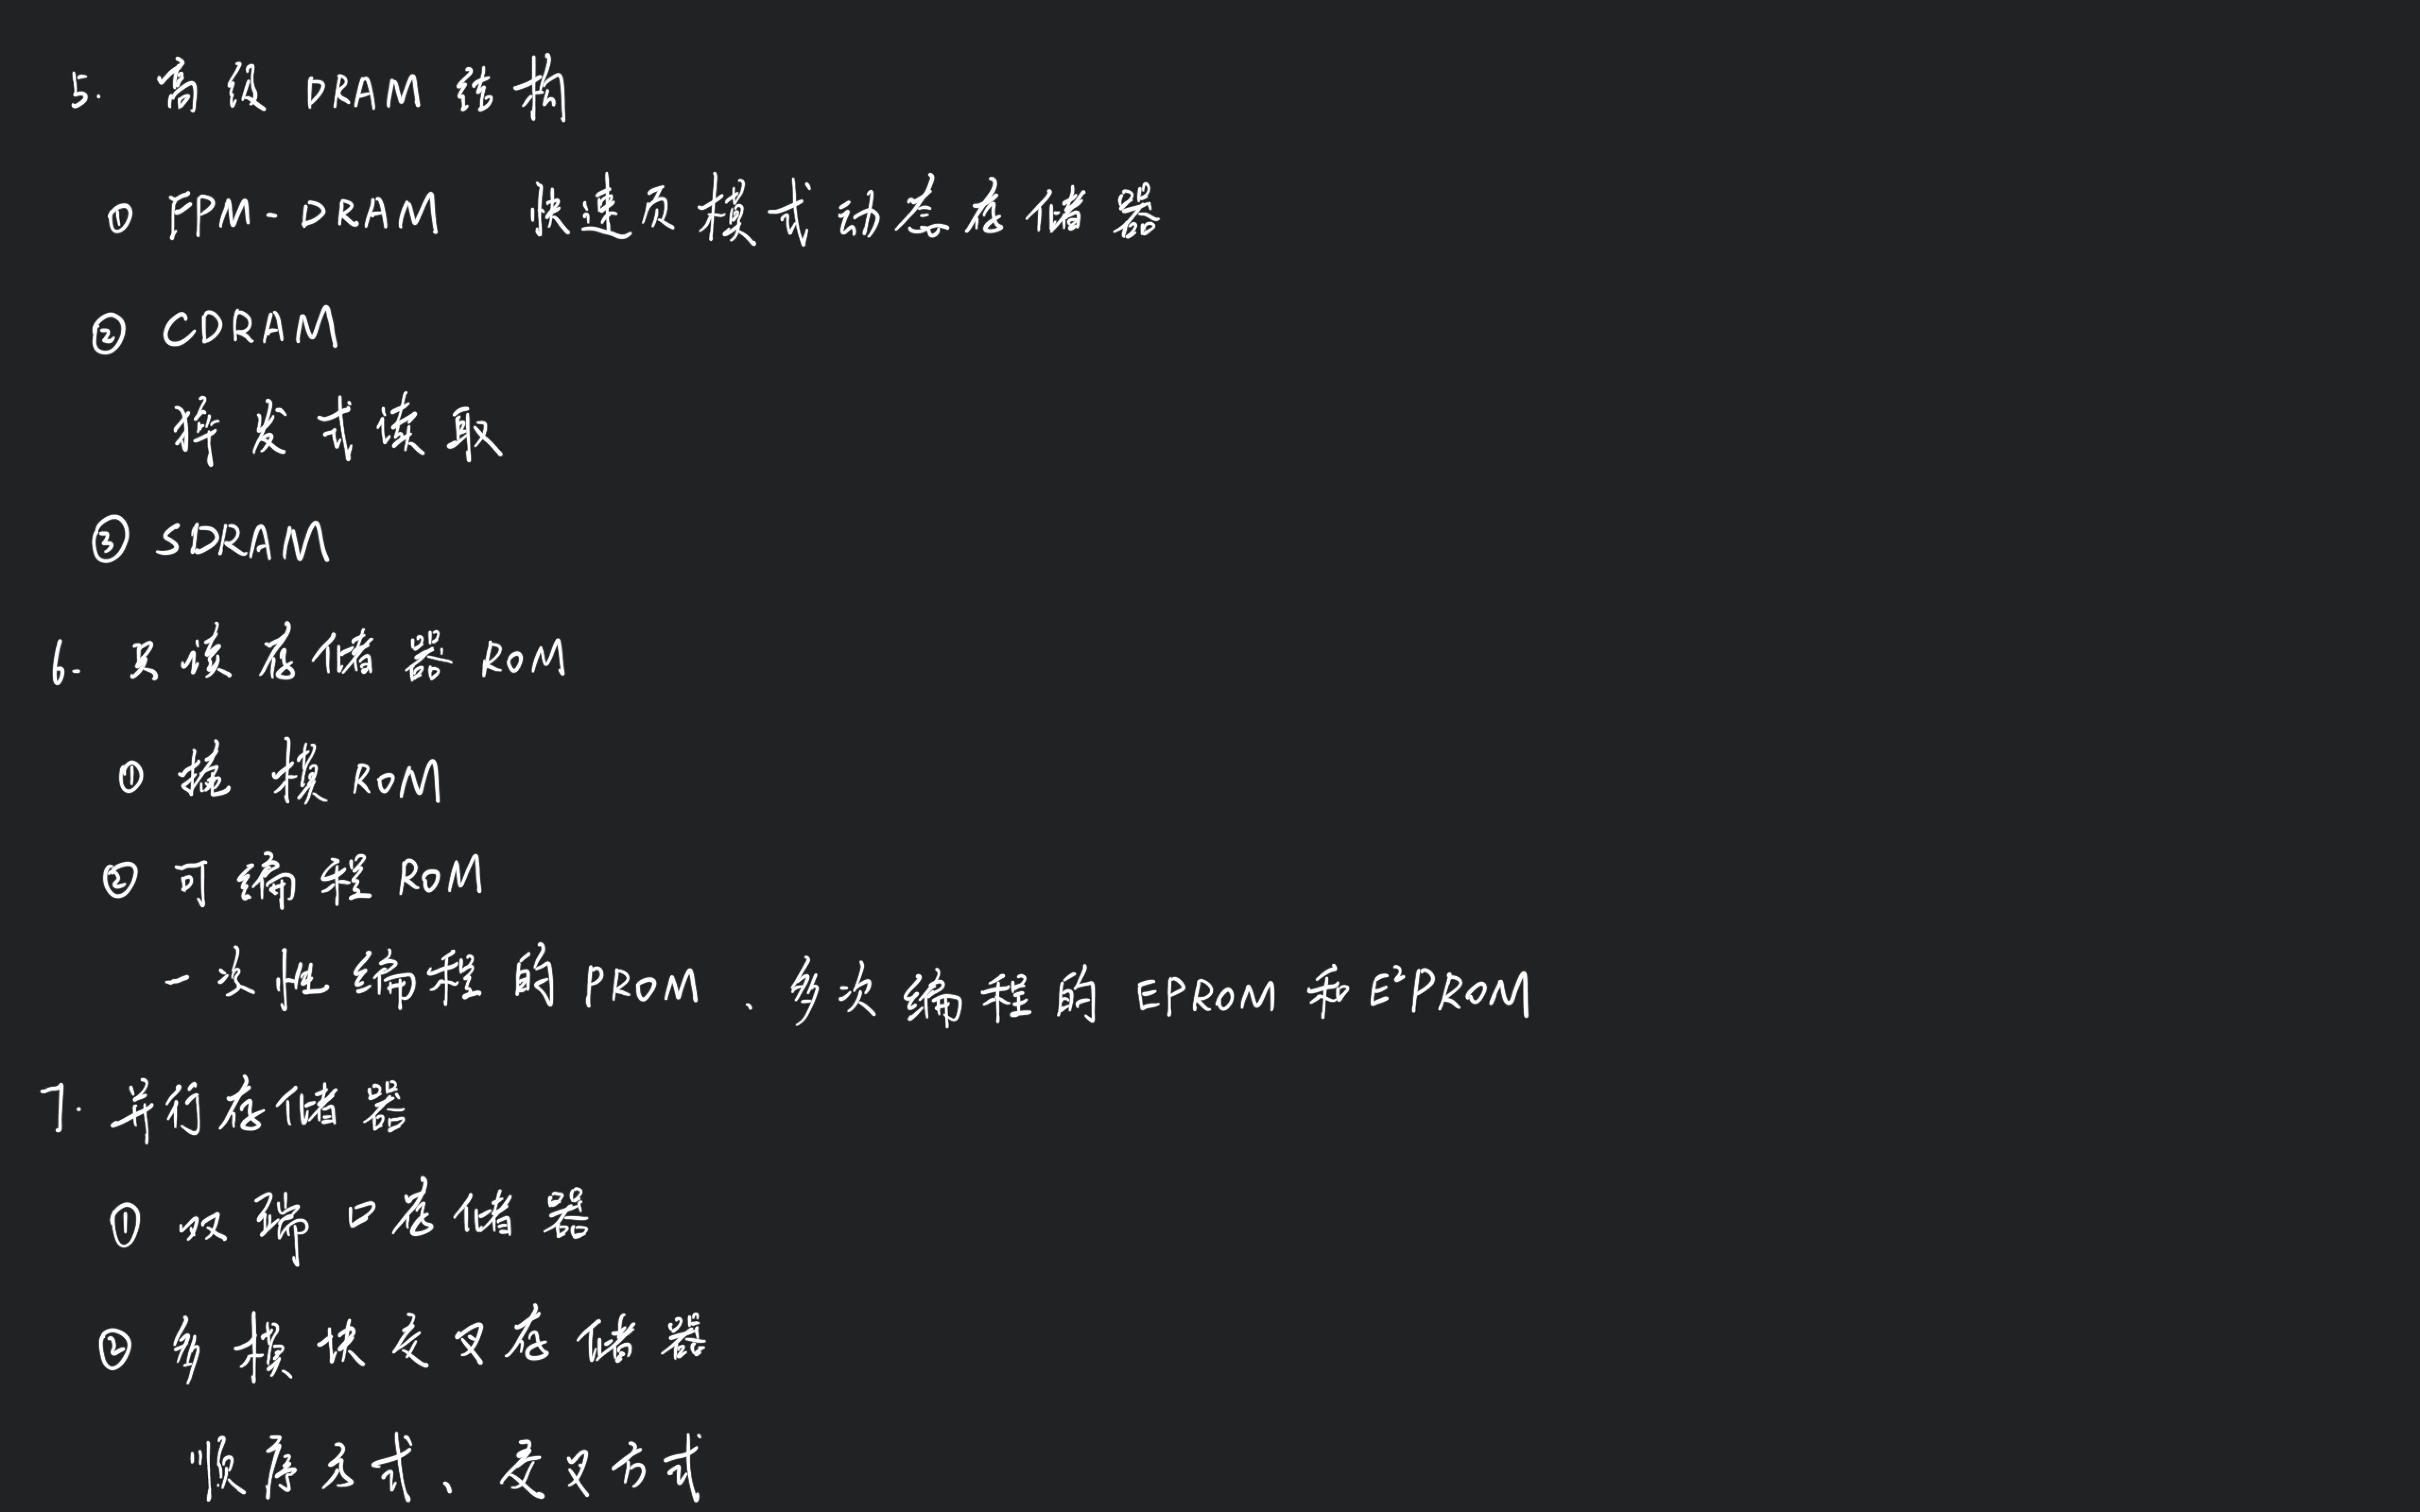 5. 高级 DRAM 结构
① FPM-DRAM 快速页模式动态存储器
② CDRAM
猝发式读取
③ SDRAM
6. 只读存储器 ROM
① 掩模 ROM
② 可编程 ROM
一次性编程的 PROM、多次编程的 EPROM 和 E²PROM
7. 并行存储器
① 双端口存储器
② 多模块交叉存储器
顺序方式、交叉方式